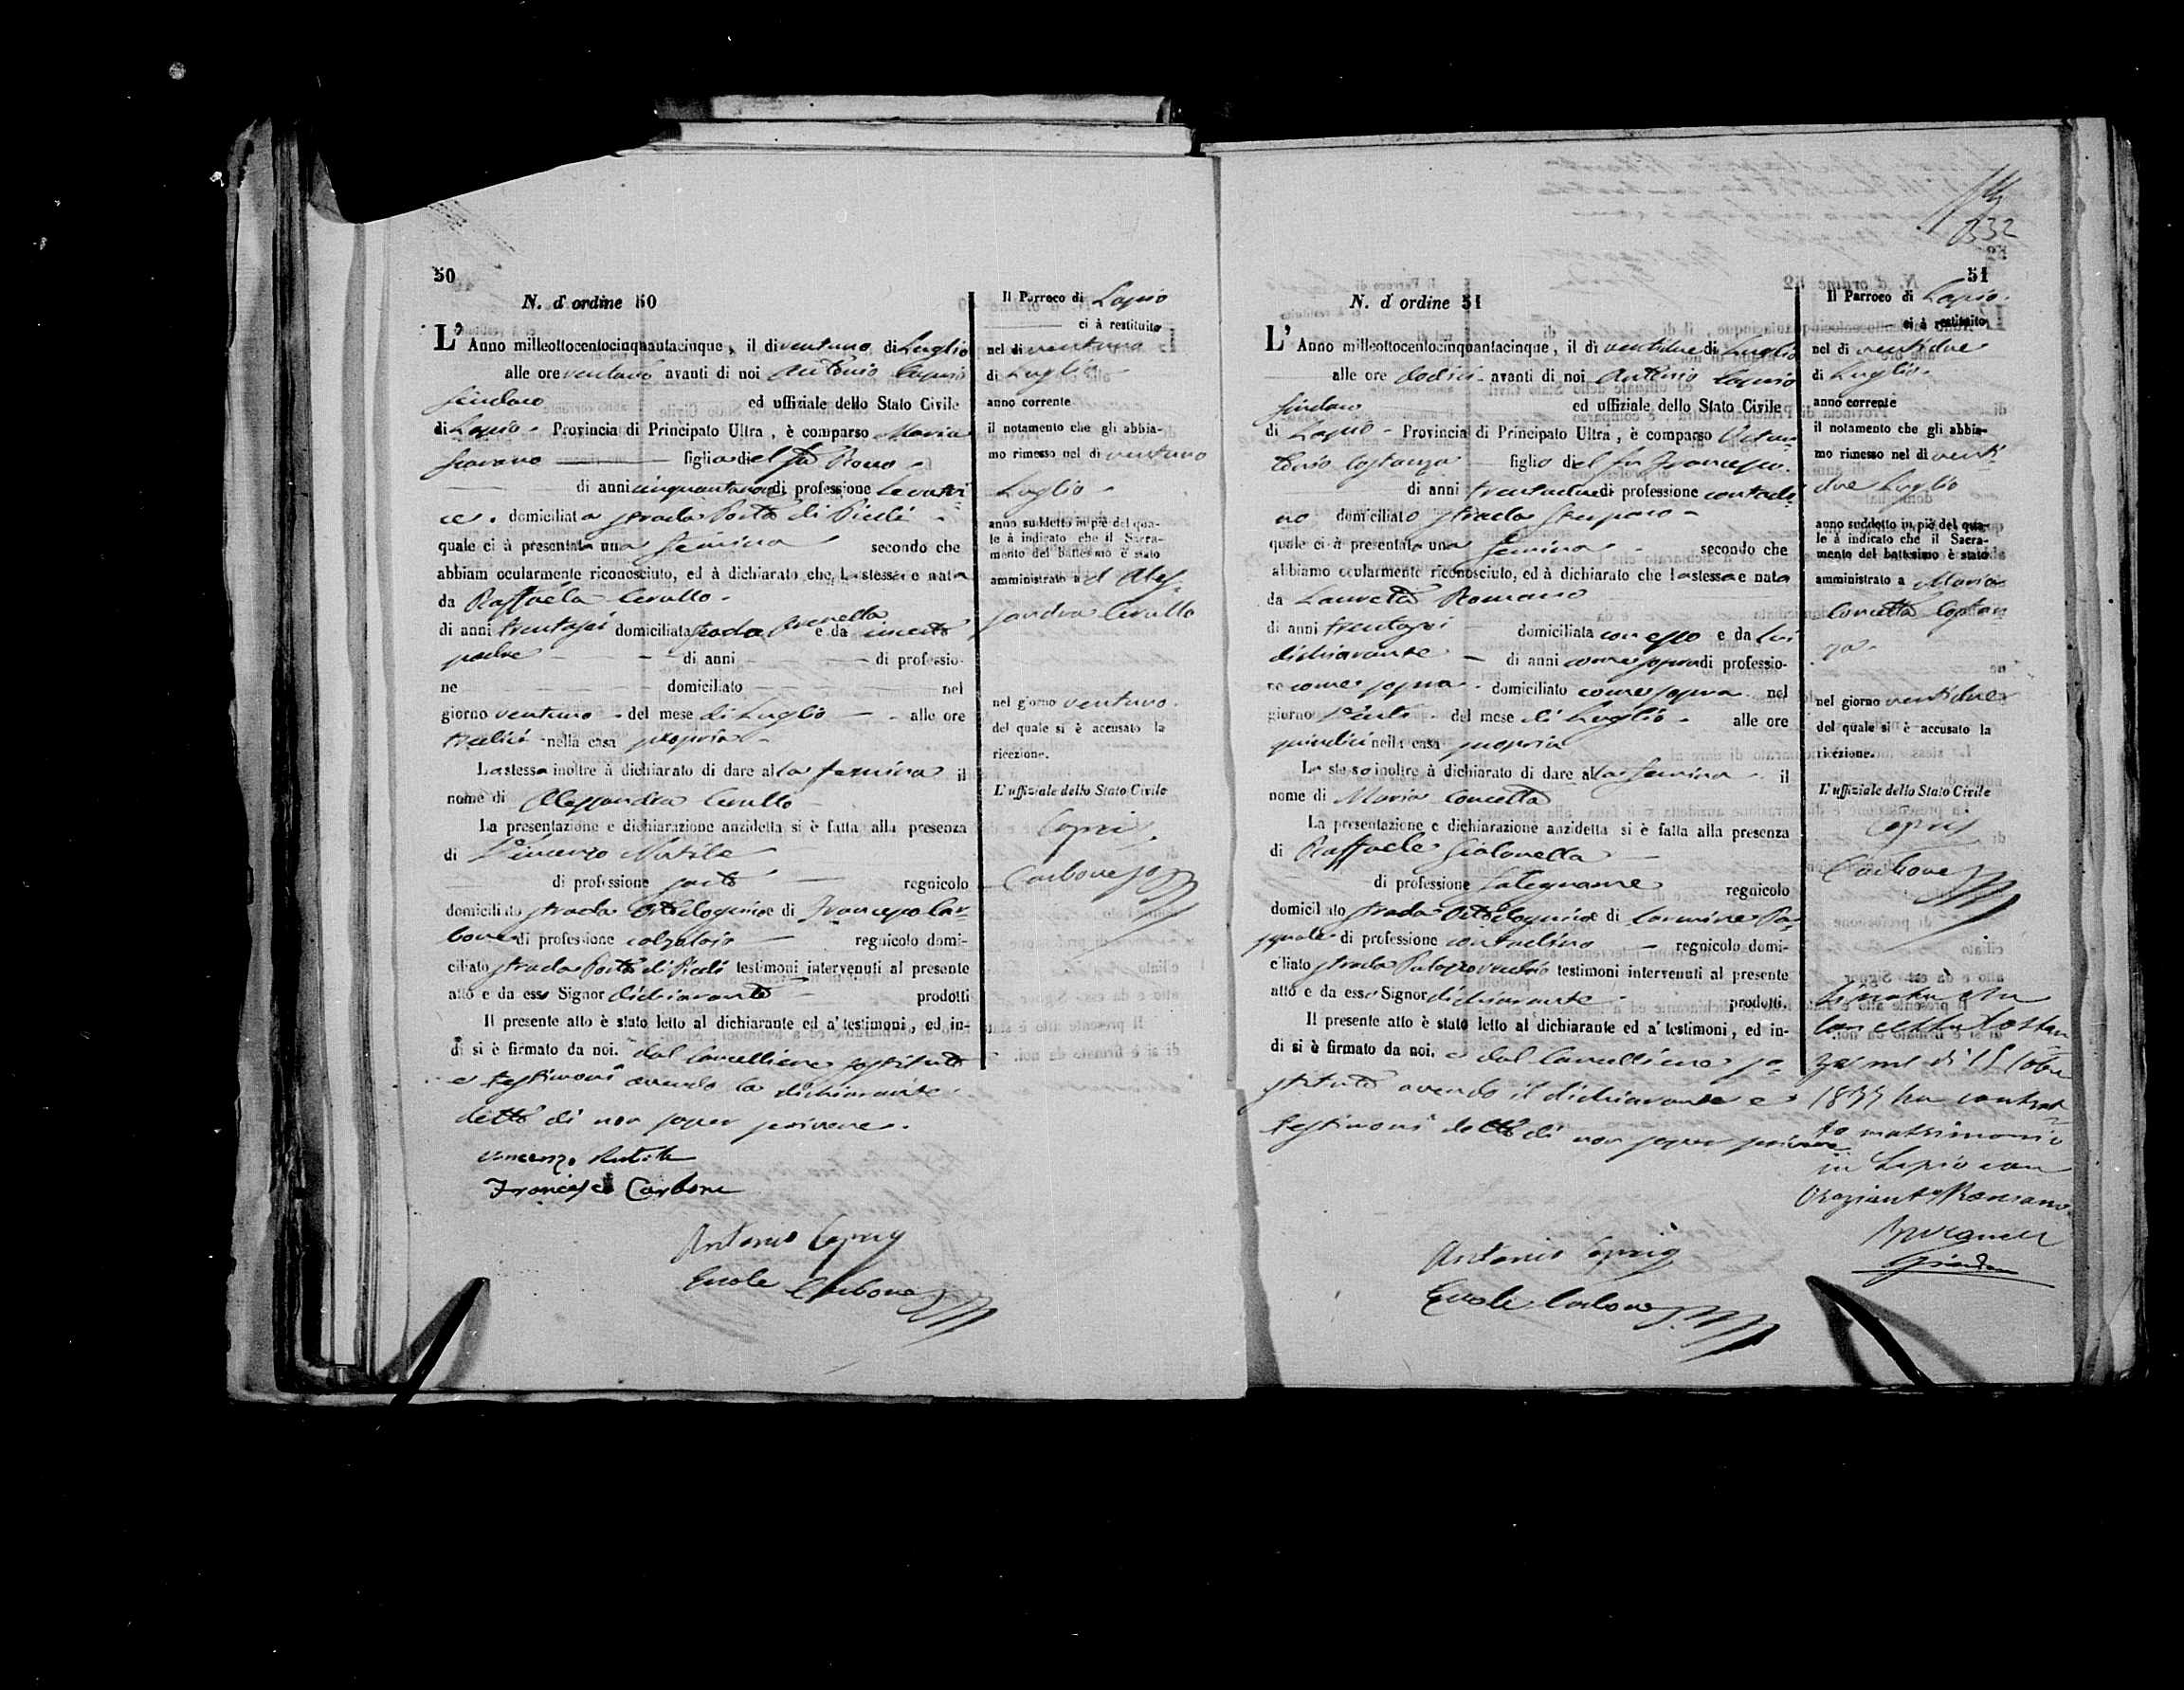 50
N. d'ordine 50
L'Anno milleottocentocinquantacinque, il dì ventuno di Luglio
alle ore ventuno avanti di noi Antonio Caprio
Sindaco ed uffiziale dello Stato Civile
di Lapio - Provincia di Principato Ultra, è comparso Maria
figlia del fu Rocco
di anni cinquantanove di professione Levatri
ce. domiciliata strada Porta di Piedi
quale ci à presentata una femina secondo che
abbiam ocularmente riconosciuto, ed à dichiarato che la stessa e nata
da Raffaela Cerullo.
di anni trentasei domiciliata strada e da incerto
padre - - di anni - di professio-
ne domiciliato nel
giorno ventuno - del mese di Luglio - alle ore
tredici nella casa propria
La stessa inoltre à dichiarato di dare alla femina il
nome di Alessandra Cerullo
La presentazione e dichiarazione anzidetta si è fatta alla presenza
di Vincenzo
di professione sarto regnicolo
domiciliato strada e di Francesco Car-
bone di professione calzolaio regnicolo domi-
ciliato strada Porta di Piedi testimoni intervenuti al presente
atto e da esso Signor dichiarante prodotti
Il presente atto è stato letto al dichiarante ed a' testimoni, ed in-
di si è firmato da noi. dal Cancelliere sostituto
e testimoni avendo la dichiarante
detto di non saper scrivere.
Vincenzo
Francesco Carbone
Antonio Caprio
Ercole Carbone
Il Parroco di Lapio
ci à restituito
nel dì ventuno
di Luglio
anno corrente
il notamento che gli abbia-
mo rimesso nel dì ventuno
Luglio
anno suddetto in piè del qua-
le à indicato che il Sacra-
mento del battesimo è stato
amministrato a d Ales-
sandra Cerullo
nel giorno ventuno.
del quale si è accusato la
ricezione.
L'uffiziale dello Stato Civile
Caprio
Carbone
332
51
N. d'ordine 51
L'Anno milleottocentocinquantacinque, il dì ventidue di Luglio
alle ore dodici - avanti di noi Antonio Caprio
Sindaco ed uffiziale dello Stato Civile
di Lapio - Provincia di Principato Ultra, è comparso
Costanza figlio del fu Francesco.
di anni trentadue di professione contadi
no domiciliato strada
quale ci à presentata una femina secondo che
abbiamo ocularmente riconosciuto, ed à dichiarato che la stessa e nata
da Lauretta Romano
di anni trentasei domiciliata con esso e da lui
dichiarante - di anni come sopra di professio-
ne come sopra - domiciliato come sopra nel
giorno venti - del mese di Luglio - alle ore
quindici nella casa propria
Lo stesso inoltre à dichiarato di dare alla femina il
nome di Maria Concetta
La presentazione e dichiarazione anzidetta si è fatta alla presenza
di Raffaele
di professione Falegname regnicolo
domiciliato strada e di Carmine Pa-
squale di professione contadino - regnicolo domi-
ciliato strada testimoni intervenuti al presente
atto e da esso Signor dichiarante prodotti.
Il presente atto è stato letto al dichiarante ed a' testimoni, ed in-
di si è firmato da noi. e dal Cancelliere so-
stituto avendo il dichiarante e
testimoni detto di non saper scrivere
Antonio Caprio
Ercole Carbone
Il Parroco di Lapio.
ci à restituito
nel dì ventidue
di Luglio.
anno corrente
il notamento che gli abbia-
mo rimesso nel dì venti-
due Luglio
anno suddetto in piè del qua-
le à indicato che il Sacra-
mento del battesimo è stato
amministrato a Maria
Concetta Costan
za.
nel giorno ventidue
del quale si è accusato la
ricezione.
L'uffiziale dello Stato Civile
Caprio
Carbone
Concetta Costan
za nel dì 15
ha contrat
to matrimonio
in Lapio con
Romano